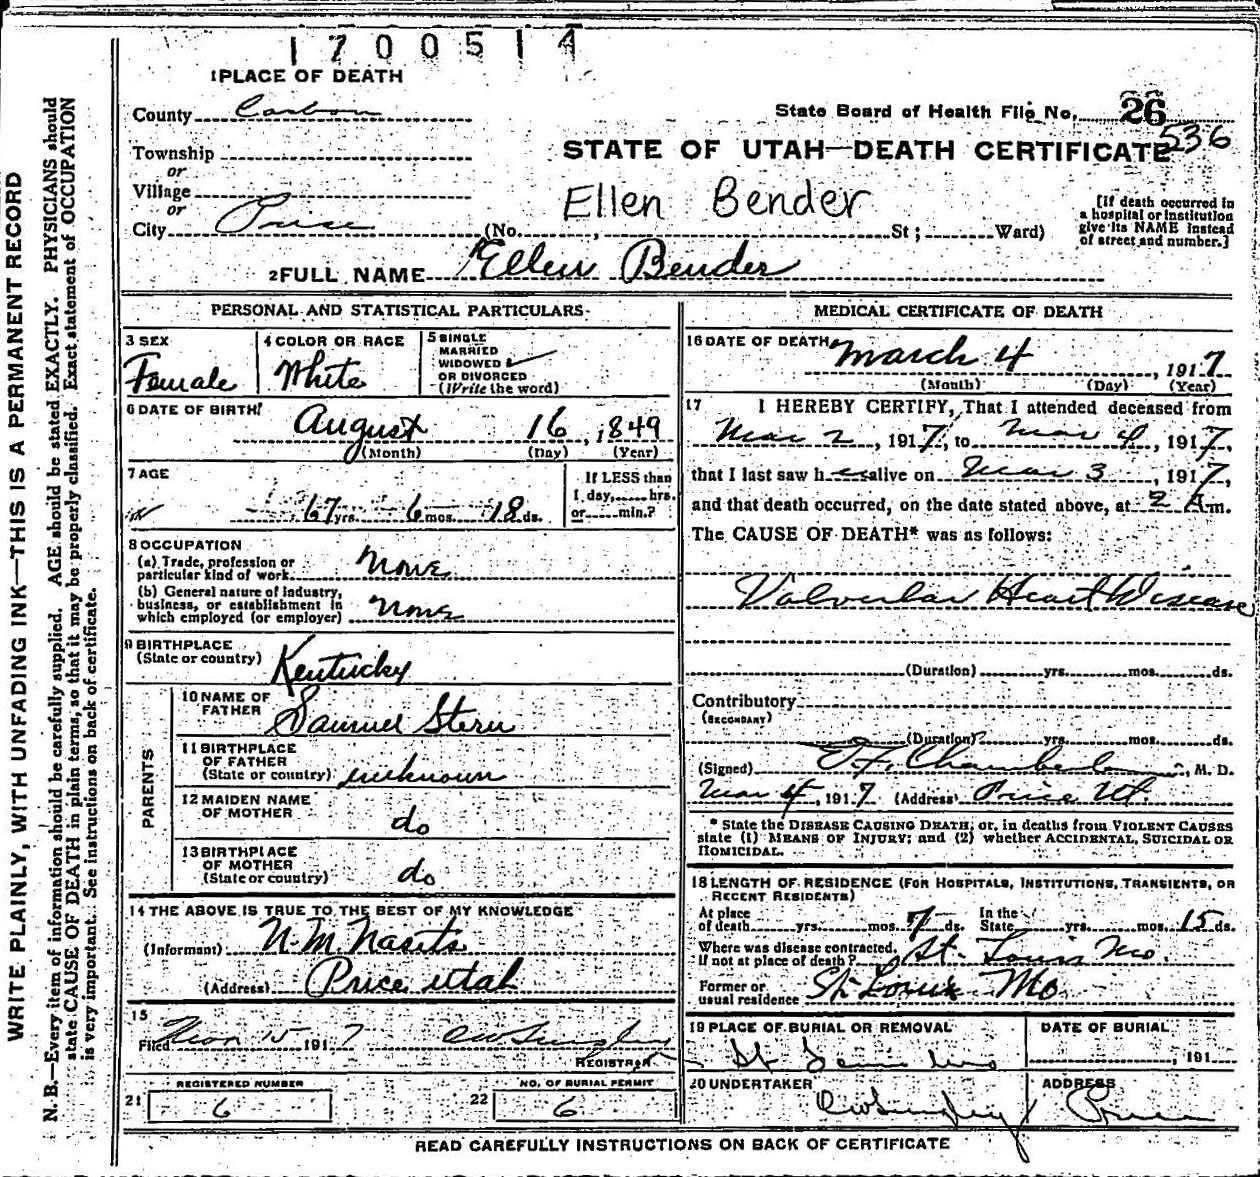 1700514
1 PLACE OF DEATH
County Carbon
State Board of Health File No. 26
536
Township
or
Village
or
City Price
STATE OF UTAH—DEATH CERTIFICATE
Ellen Bender
(No. , St; Ward)
[If death occurred in
a hospital or institution
give its NAME instead
of street and number.]
2 FULL NAME Ellen Bender
PERSONAL AND STATISTICAL PARTICULARS
3 SEX
Female
4 COLOR OR RACE
White
5 SINGLE
MARRIED
WIDOWED ✓
OR DIVORCED
(Write the word)
6 DATE OF BIRTH
August 16, 1849
(Month) (Day) (Year)
7 AGE
67 yrs. 6 mos. 18 ds.
If LESS than
1 day, hrs.
or min.?
8 OCCUPATION
(a) Trade, profession or
particular kind of work None
(b) General nature of industry,
business, or establishment in
which employed (or employer) None
9 BIRTHPLACE
(State or country) Kentucky
PARENTS
10 NAME OF
FATHER Samuel Stern
11 BIRTHPLACE
OF FATHER
(State or country) unknown
12 MAIDEN NAME
OF MOTHER do
13 BIRTHPLACE
OF MOTHER
(State or country) do
14 THE ABOVE IS TRUE TO THE BEST OF MY KNOWLEDGE
(Informant) N. M.
(Address) Price utah
15
Filed Mar 15 1917
REGISTRAR
REGISTERED NUMBER
21 6
NO. OF BURIAL PERMIT
22 6
MEDICAL CERTIFICATE OF DEATH
16 DATE OF DEATH March 4, 1917
(Month) (Day) (Year)
17 I HEREBY CERTIFY, That I attended deceased from
Mar 2, 1917, to Mar 4, 1917,
that I last saw her alive on Mar 3, 1917,
and that death occurred, on the date stated above, at 2 A m.
The CAUSE OF DEATH* was as follows:
Valvular Heart Disease
(Duration) yrs. mos. ds.
Contributory
(SECONDARY)
(Duration) yrs. mos. ds.
(Signed) , M. D.
Mar 4, 1917 (Address) Price Ut.
* State the DISEASE CAUSING DEATH; or, in deaths from VIOLENT CAUSES
state (1) MEANS OF INJURY; and (2) whether ACCIDENTAL, SUICIDAL OR
HOMICIDAL.
18 LENGTH OF RESIDENCE (FOR HOSPITALS, INSTITUTIONS, TRANSIENTS, OR
RECENT RESIDENTS)
At place
of death yrs. mos. 7 ds.
In the
State yrs. mos. 15 ds.
Where was disease contracted,
if not at place of death? St. Louis Mo.
Former or
usual residence St Louis Mo
19 PLACE OF BURIAL OR REMOVAL
St Louis Mo
DATE OF BURIAL
, 191
20 UNDERTAKER
ADDRESS
Price
READ CAREFULLY INSTRUCTIONS ON BACK OF CERTIFICATE
WRITE PLAINLY, WITH UNFADING INK—THIS IS A PERMANENT RECORD
N. B.—Every item of information should be carefully supplied. AGE should be stated EXACTLY. PHYSICIANS should
state CAUSE OF DEATH in plain terms, so that it may be properly classified. Exact statement of OCCUPATION
is very important. See instructions on back of certificate.